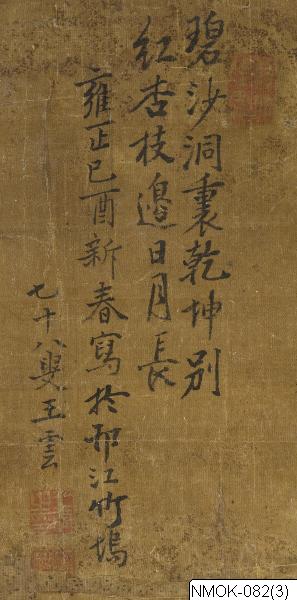 碧沙洞裏乾坤別
紅杏枝邊日月長
雍正己酉新春寫於邗江竹塢
七十八叟王雲
NMOK-082(3)